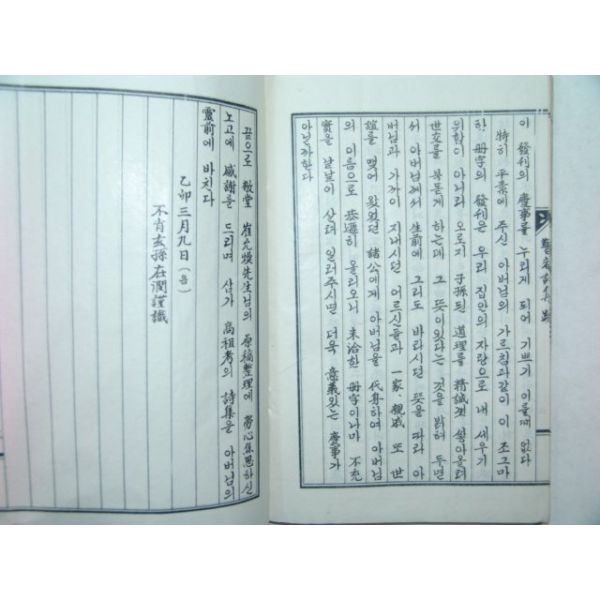 이 發刊의 慶事를 누리게 되어 기쁘기 이를데 없다
特히 平素에 주신 아버님의 가르침과같이 이 조그마
한 冊字의 發刊은 우리 집안의 자랑으로 내 세우기
위함이 아니라 오로지 子孫된 道理를 精誠껏 쌓아올려
世交를 북돋게 하는데 그 뜻이있다는 것을 밝혀 두면
서 아버님께서 生前에 그리도 바라시던 뜻을 따라 아
버님과 가까이 지내시던 어르신들과 一家·親戚 또 世
誼를 맺어 왔었던 諸公에게 아버님을 代身하여 아버님
의 이름으로 恭遜히 올리오니 未洽한 冊字이나마 不充
實을 낱낱이 살펴 일러주시면 더욱 意義있는 慶事가
아닐까한다
끝으로 敬堂 崔允煥先生님의 原稿整理에 勞心焦思하신
노고에 感謝를 드리며 삼가 高祖考의 詩集을 아버님의
靈前에 바친다
乙卯 三月九日 (음)
不肖玄孫在潤謹識